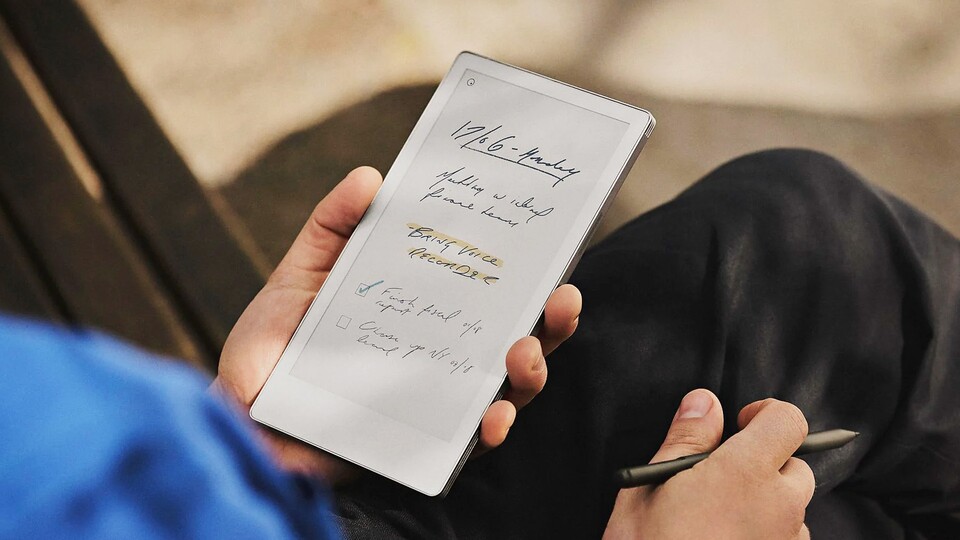 17/06 - Monday
Meeting w
finance team
BRING VOICE
RECORDER
Finish fiscal
report 01/18
Close up NY 02/18